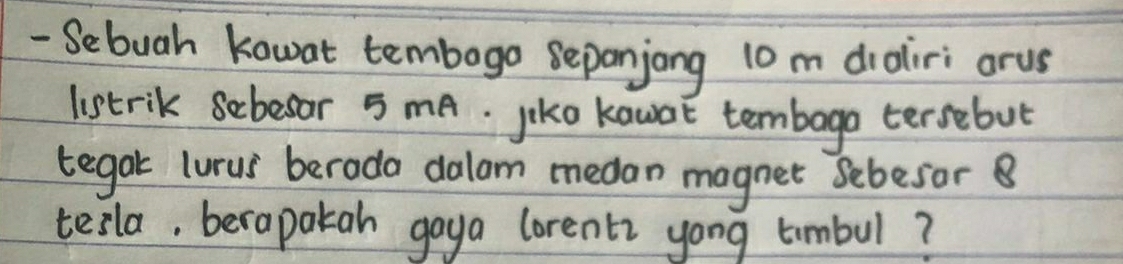 - Sebuah kawat tembaga sepanjang 10 m dialiri arus
listrik sebesar 5 mA. jika kawat tembaga tersebut
tegak lurus berada dalam medan magnet sebesar 8
tesla, berapakah gaya lorentz yang timbul ?